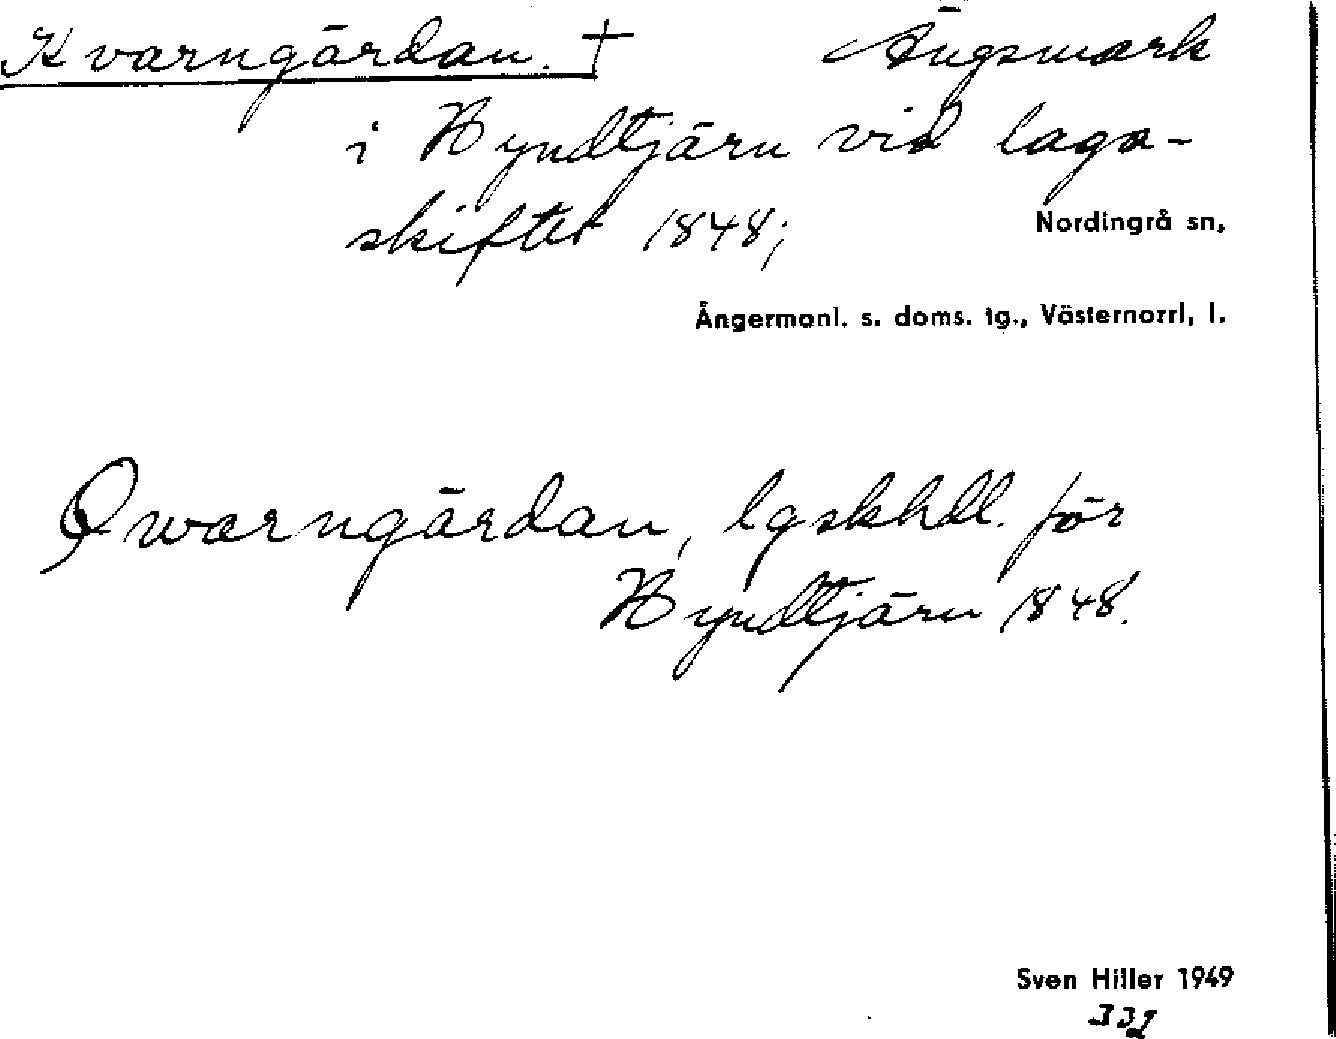 Kvarngärdan. † Ängsmark
i Hyndtjärn vid laga-
skiftet 1848;
Nordingrå sn,
Ångermanl. s. doms. tg., Västernorrl, l.
Qwarngärdan, lgskhdl. för
Hyndtjärn 1848.
Sven Hiller 1949